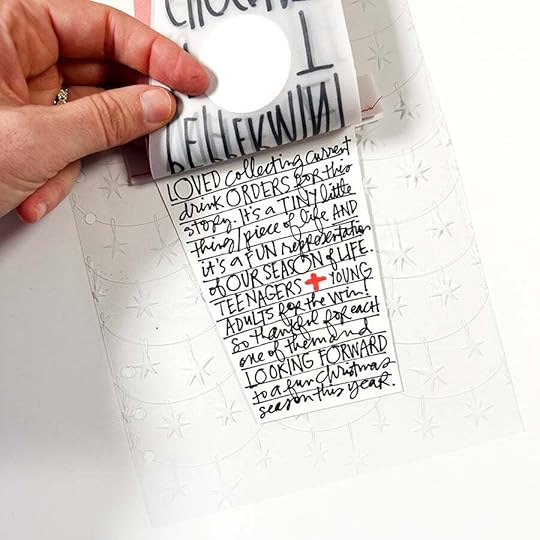 LOVED collecting current
drink ORDERS for this
story. It's a TINY little
thing/piece of life AND
it's a FUN representation
of OUR SEASON of LIFE.
TEENAGERS + YOUNG
ADULTS for the win!
So thankful for each
one of them and
LOOKING FORWARD
to a fun Christmas
season this year.